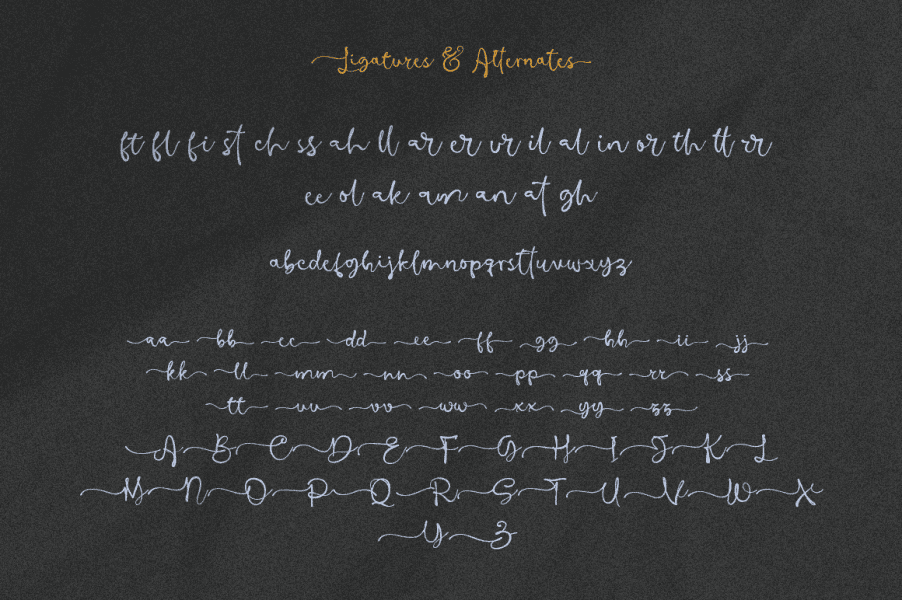 Ligatures & Alternates
ft fl fi st ch ss ah ll ar er ur il al in or th tt rr
ee ol ak am an at gh
abcdefghijklmnopqrsttuvwxyz
aa bb cc dd ee ff gg hh ii jj
kk ll mm nn oo pp qq rr ss
tt uu vv ww xx yy zz
A B C D E F G H I J K L
M N O P Q R S T U V W X
Y Z